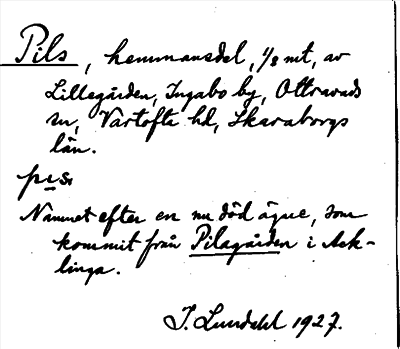 Pils, hemmansdel, 1/8 mt, av
Lillegården, Ingabo by, Ottravads
sn, Vartofta hd, Skaraborgs
län.
Namnet efter en nu död ägare, som
kommit från Pilagården i Ack-
linga.
J. Lundahl 1927.